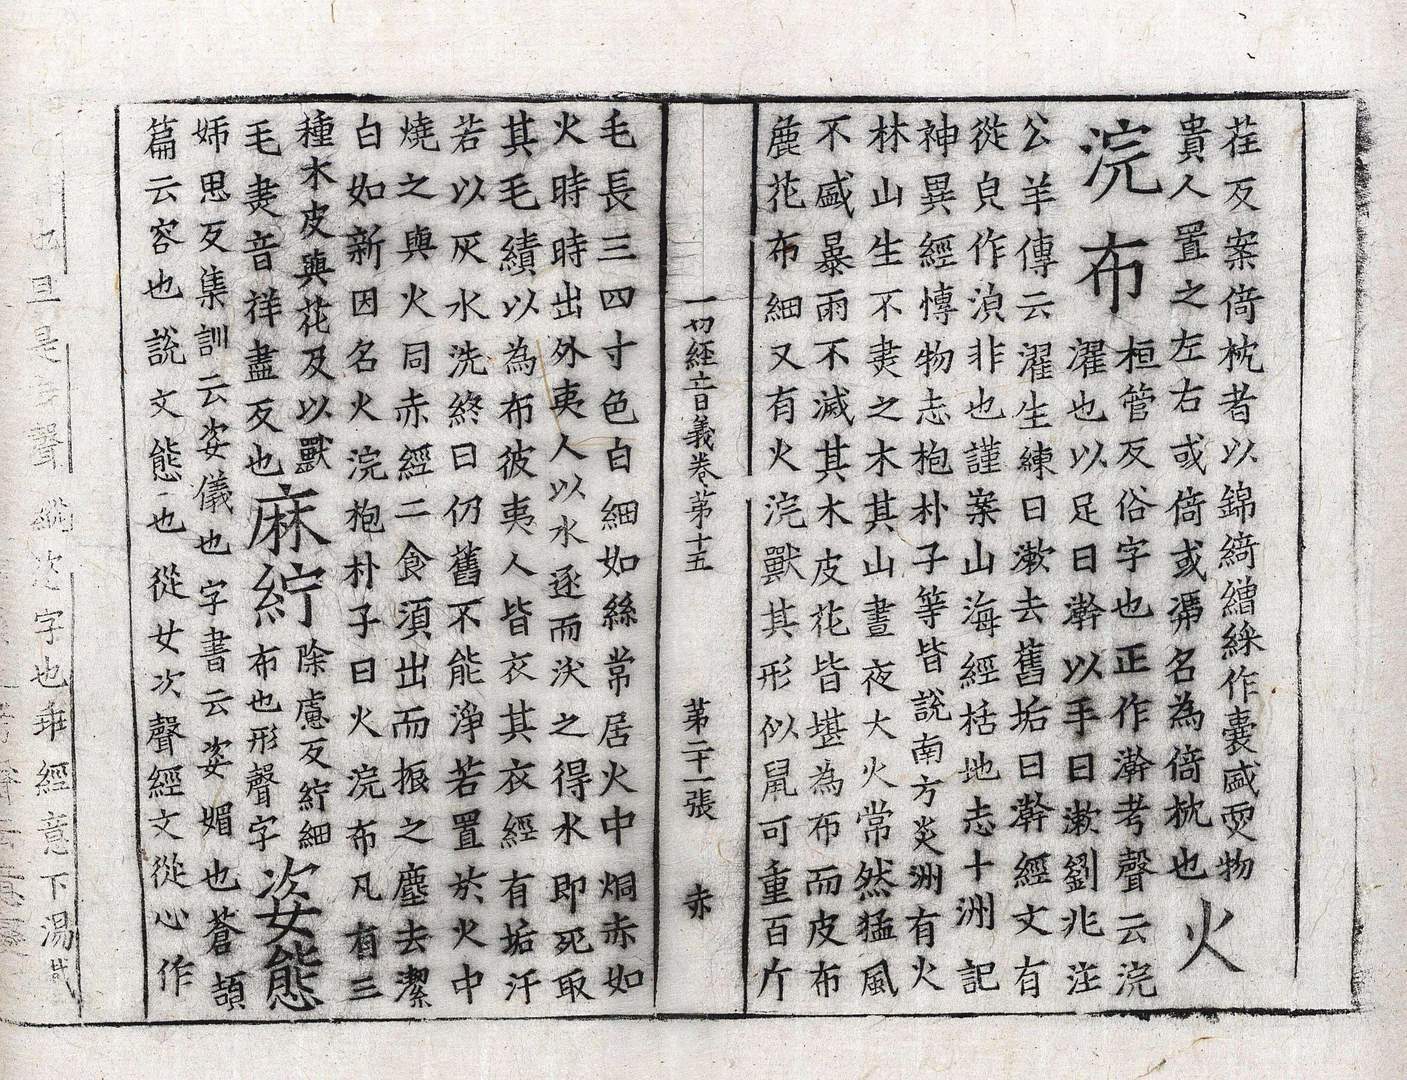 荏反案倚枕者以錦綺繒綵作囊盛耎物
貴人置之左右或倚或凴名為倚枕也火
浣布桓管反俗字也正作澣考聲云浣
濯也以足曰澣以手曰漱劉兆注
公羊傳云濯生練曰漱去舊垢曰澣經文有
從皃作湏非也謹案山海經括地志十洲記
神異經愽物志枹朴子等皆說南方炎洲有火
林山生不㶳之木其山晝夜大火常然猛風
不盛暴雨不滅其木皮花皆堪為布而皮布
麁花布細又有火浣獸其形似鼠可重百斤
一切經音義卷第十五 第二十一張 赤
毛長三四寸色白細如絲常居火中烔赤如
火時時出外夷人以水逐而沃之得水即死取
其毛績以為布彼夷人皆衣其衣經有垢汙
若以灰水洗終日仍舊不能淨若置於火中
燒之與火同赤經二食湏出而振之塵去潔
白如新因名火浣枹朴子曰火浣布凡有三
種木皮與花及以獸麻紵除慮反紵細
毛㶳音祥盡反也布也形聲字姿態
姊思反集訓云姿儀也字書云姿媚也蒼頡
篇云容也說文態也從女次聲經文從心作